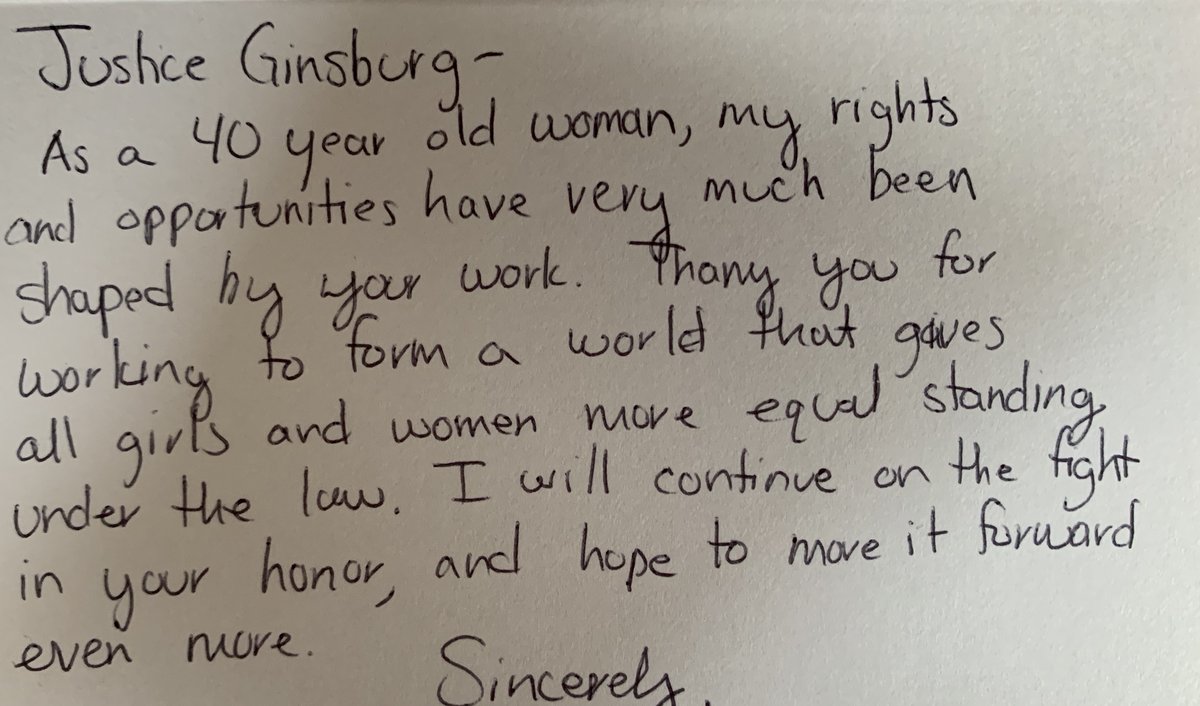 Justice Ginsburg-
As a 40 year old woman, my rights
and opportunities have very much been
shaped by your work. Thany you for
working to form a world that gives
all girls and women more equal standing
under the law. I will continue on the fight
in your honor, and hope to move it forward
even more.
Sincerely,